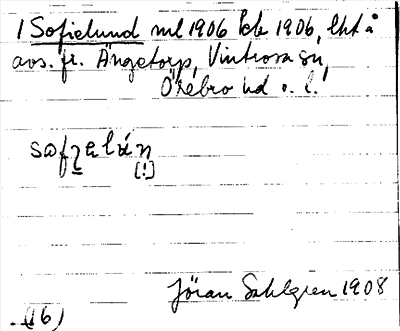 1 Sofielund ml 1906 bb 1906, lht å
avs. fr. Ängetorp, Vintrosa sn,
Örebro hd o. l.
sofɿelún
[!]
Jöran Sahlgren 1908
(16)